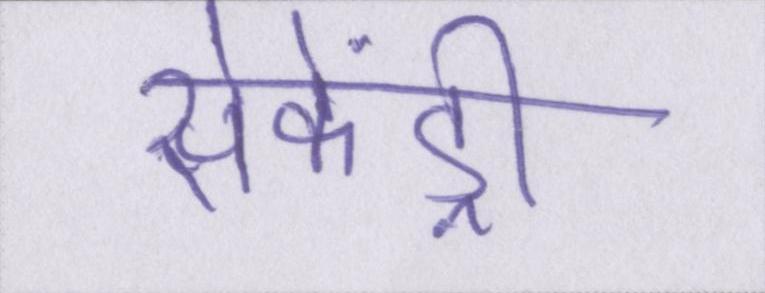 सेकेंड्री